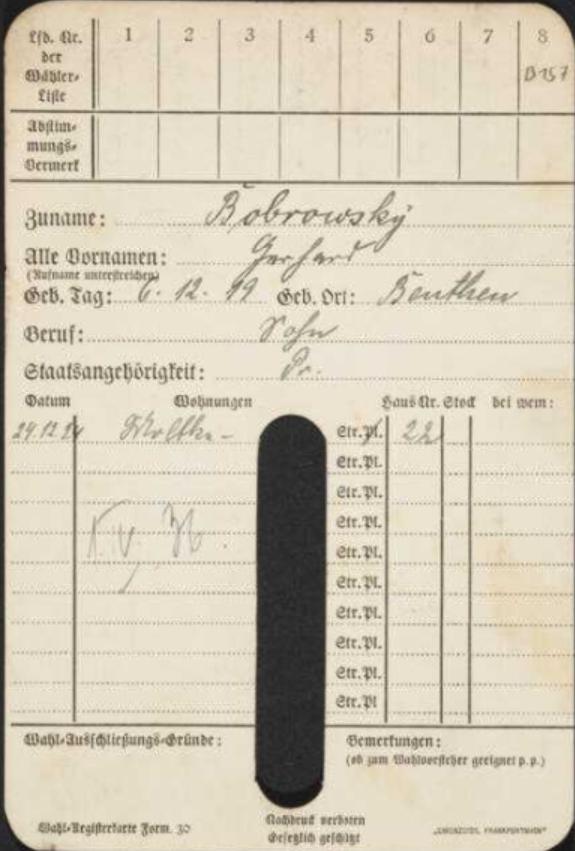 Lfd. Nr. der Wähler-Liste 1 2 3 4. 5 6 7 8
B 157
Abstim-
mungs-
Vermerk
Zuname: Bobrowsky
Alle Vornamen: Gerhard
(Rufname unterstreichen)
Geb. Tag: 6. 12. 99 Geb. Ort: Beuthen
Beruf: Sohn
Staatsangehörigkeit: Pr.
Datum Wohnungen Haus Nr. Stock bei wem:
24.12.24 Moltke- Str. Pl. 22
Str. Pl.
Str. Pl.
Str. Pl.
Str. Pl.
Str. Pl.
Str. Pl.
Str. Pl.
Str. Pl.
Str. Pl
Wahl-Ausschließungs-Gründe:
Bemerkungen:
(ob zum Wahlvorsteher geeignet p.p.)
Wahl-Registerkarte Form. 30
Nachdruck verboten
Gesetzlich geschützt